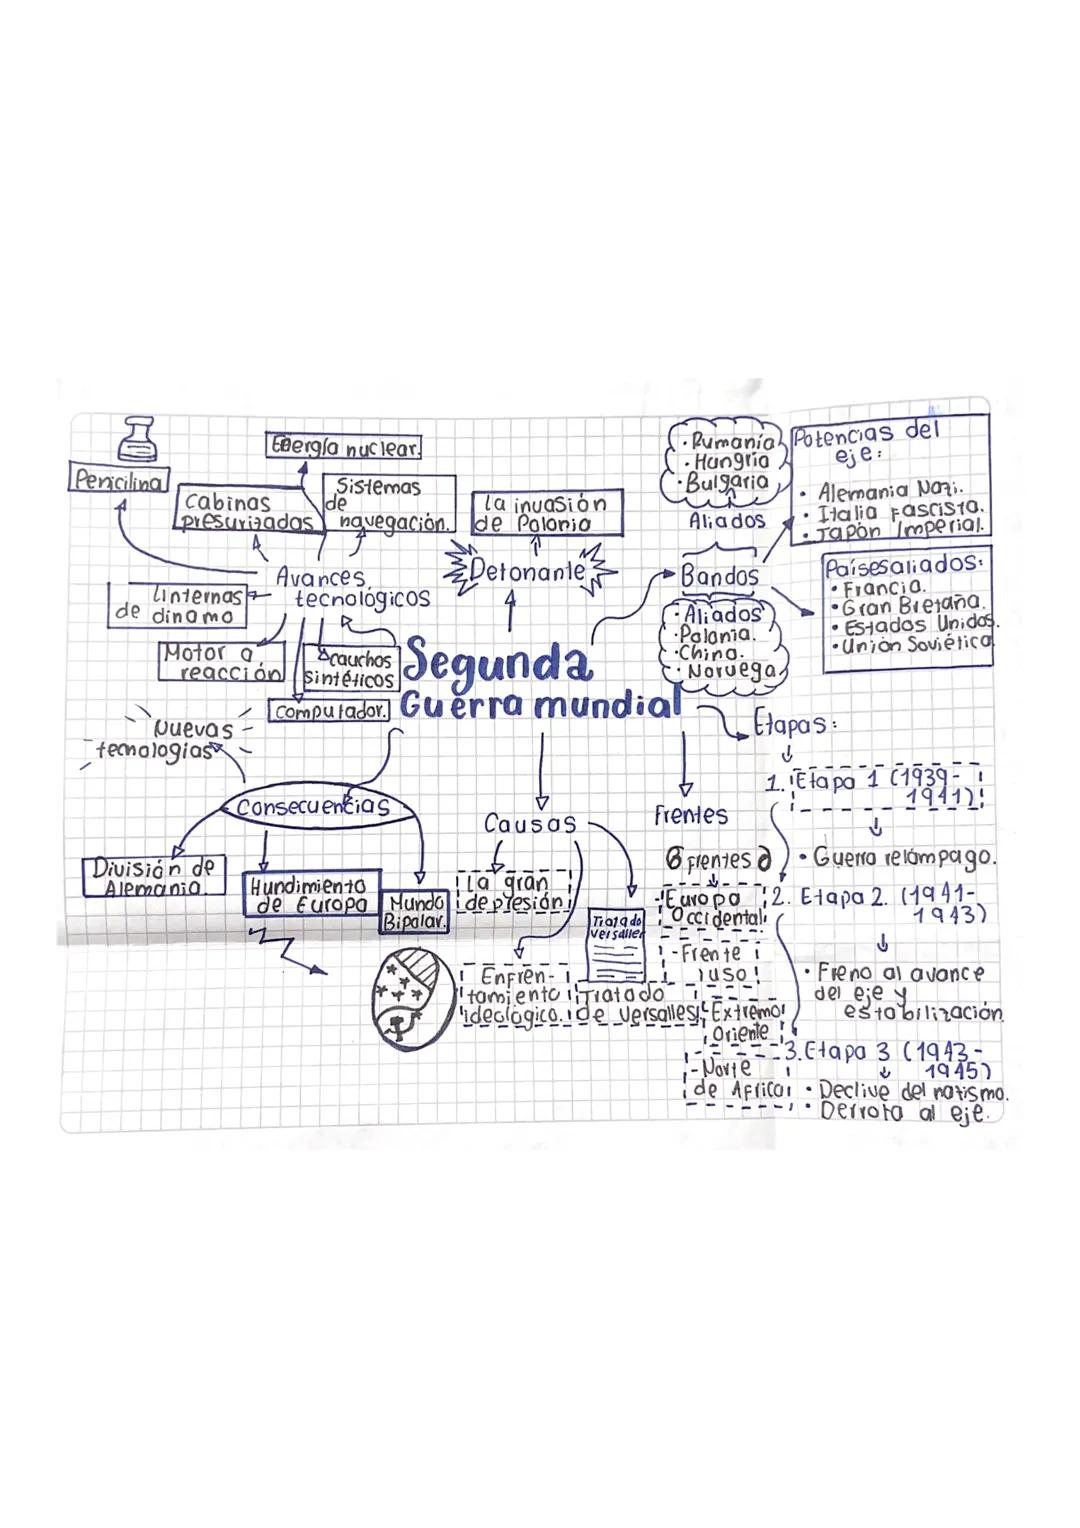 Energía nuclear.
Penicilina
Cabinas
presurizadas
Sistemas
de
navegación.
La invasión
de Polonia
Detonante
Avances
tecnológicos
Linternas
de dinamo
Motor a
reacción
cauchos
sintéticos
Computador.
Segunda
Guerra mundial
· Rumania
· Hungria
· Bulgaria
Aliados
Bandos
· Aliados
· Polonia.
· China.
· Noruega
Potencias del
eje:
· Alemania Nazi.
· Italia Fascista.
· Japón Imperial.
Paises aliados:
· Francia.
· Gran Bretaña.
· Estados Unidos.
· Unión Soviética
Nuevas
tecnologias
Consecuencias
División de
Alemania.
Hundimiento
de Europa
Mundo
Bipolar.
Causas
La gran
depresión
Enfren-
tamiento
ideológico.
Tratado
versalles
Tratado
de Versalles
Frentes
6 frentes
- Europa
Occidental
- Frente
ruso
- Extremo
Oriente
- Norte
de Africa
Etapas:
1. Etapa 1 (1939-
1941)
· Guerra relámpago.
2. Etapa 2. (1941-
1943)
· Freno al avance
del eje y
estabilización
3. Etapa 3 (1943-
1945)
· Declive del natismo.
· Derrota al eje.